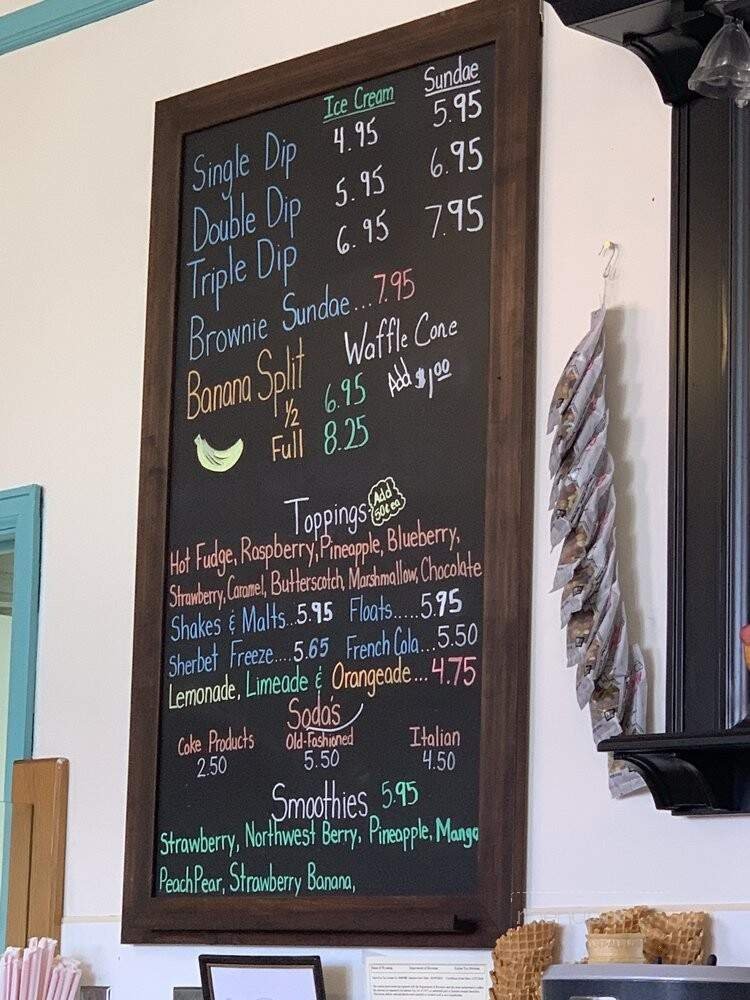 Ice Cream Sundae
Single Dip 4.95 5.95
Double Dip 5.95 6.95
Triple Dip 6.95 7.95
Brownie Sundae...7.95
Banana Split Waffle Cone
1/2 6.95 Add $1.00
Full 8.25
Toppings Add 50¢ ea
Hot Fudge, Raspberry, Pineapple, Blueberry,
Strawberry, Caramel, Butterscotch, Marshmallow, Chocolate
Shakes & Malts...5.95 Floats.....5.95
Sherbet Freeze....5.65 French Cola...5.50
Lemonade, Limeade & Orangeade...4.75
Soda's
Coke Products Old-Fashioned Italian
2.50 5.50 4.50
Smoothies 5.95
Strawberry, Northwest Berry, Pineapple, Mango
Peach Pear, Strawberry Banana,